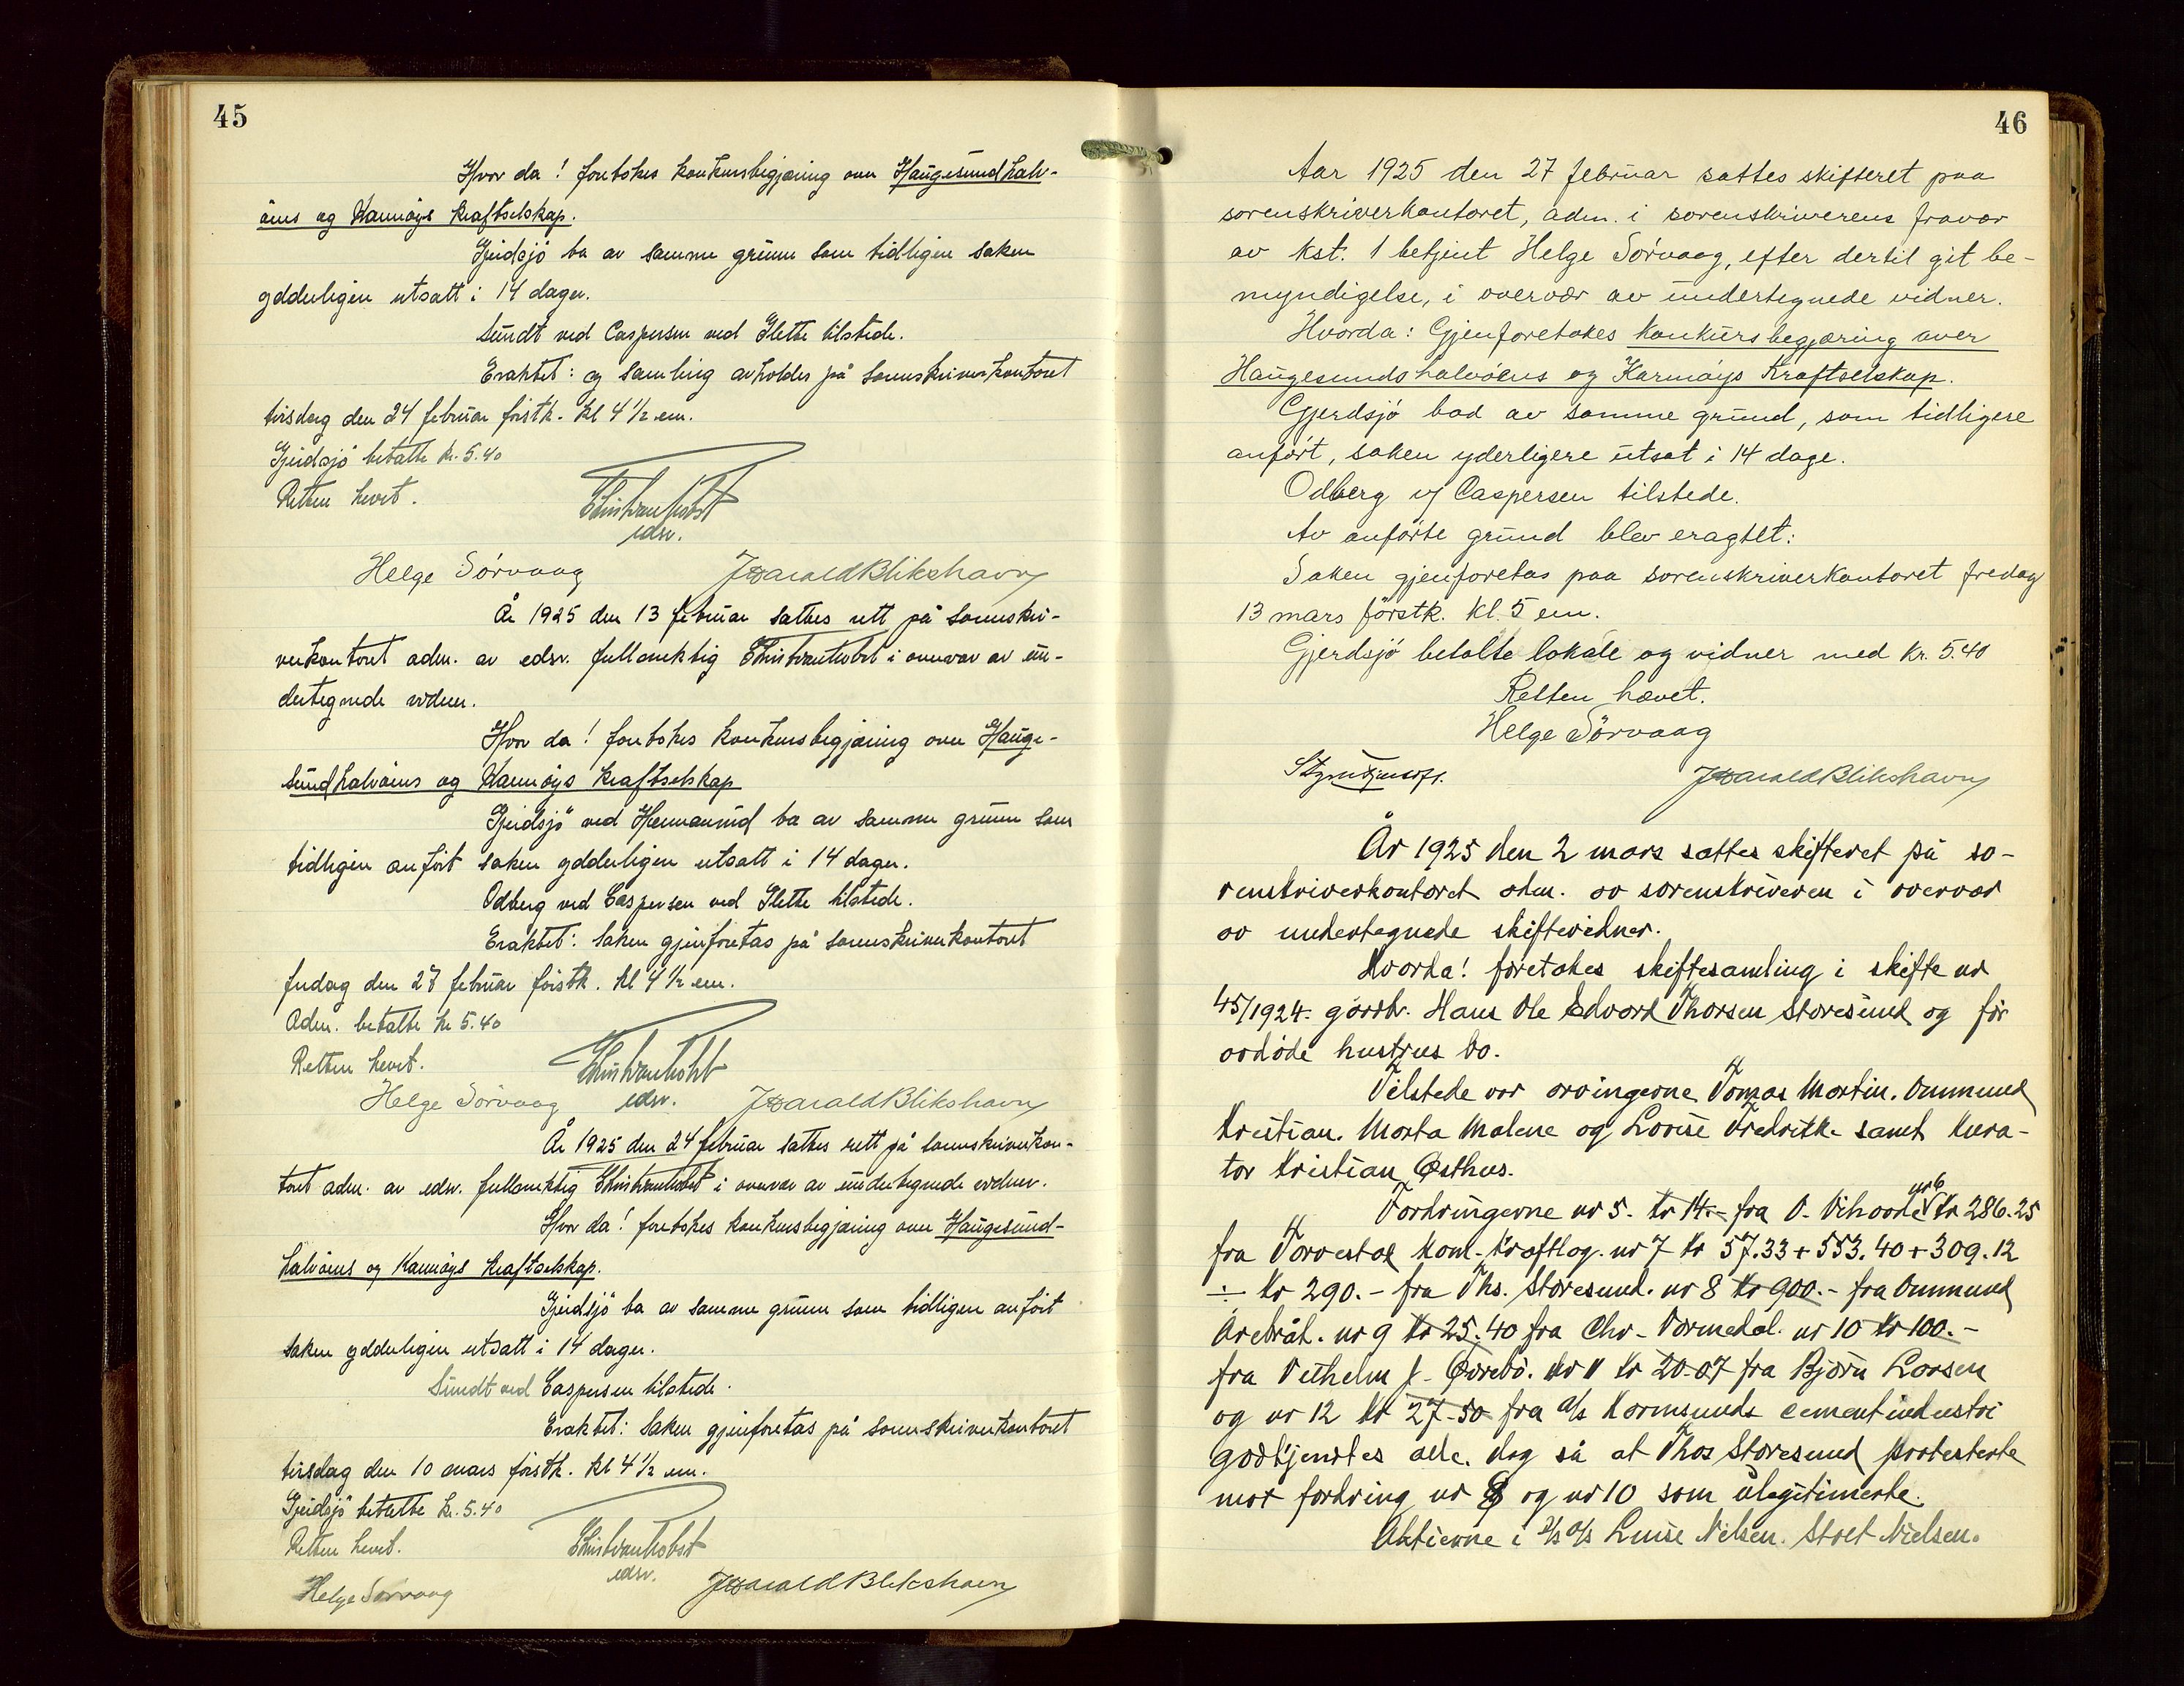 45
Hvor da! foretokes konkursbegjæring over Haugesundhalv-
øens og Karmøys kraftselskap.
Gjerdsjö ba av samme grunn som tidligere saken
ydderligere utsatt i 14 dager.
Sundt ved Caspersen ved Slette tilstede.
Eraktet: og samling avholdes på sorenskriverkontoret
tirsdag den 24 februar förstk. kl 4 1/2 em.
Gjerdsjö betalte kr. 5.40
Retten hevet.
edsv.
Helge Sörvaag Harald Blikshavn
År 1925 den 13 februar sattes rett på sorenskri-
verkontoret adm. av edsv. fullmektig i overvær av un-
dertegnede vidner.
Hvor da! foretokes konkursbegjæring over Hauge-
sundhalvøens og Karmøys kraftselskap
Gjerdsjö ved ba av samme grunn som
tidligere anfört saken ydderligere utsatt i 14 dager.
Odberg ved Caspersen ved Slette tilstede.
Eraktet: Saken gjenforetas på sorenskriverkontoret
fredag den 27 februar förstk. kl 4 1/2 em.
Adm. betalte kr 5.40
Retten hevet.
edsv.
Helge Sörvaag Harald Blikshavn
År 1925 den 24 februar sattes rett på sorenskriverkon-
toret adm. av edsv. fullmektig i overvær av undertegnede vidner.
Hvor da! foretokes konkursbegjæring over Haugesund-
halvøens og Karmøys kraftselskap.
Gjerdsjö ba av samme grunn som tidligere anfört
saken ydderligere utsatt i 14 dager.
Sundt ved Caspersen tilstede.
Eraktet: Saken gjenforetas på sorenskriverkontoret
tirsdag den 10 mars förstk. kl 4 1/2 em.
Gjerdsjö betalte kr. 5.40
Retten hevet.
edsv.
Helge Sörvaag Harald Blikshavn
46
Aar 1925 den 27 februar sattes skifteret paa
sorenskriverkontoret, adm. i sorenskriverens fravær
av kst. 1 betjent Helge Sörvaag, efter dertil git be-
myndigelse, i overvær av undertegnede vidner.
Hvorda: Gjenforetokes konkursbegjæring over
Haugesundshalvöens og Karmöys Kraftselskap.
Gjerdsjö bad av samme grund, som tidligere
anfört, saken yderligere utsat i 14 dage.
Odberg v/ Caspersen tilstede.
Av anförte grund blev eragtet:
Saken gjenforetas paa sorenskriverkontoret fredag
13 mars förstk. kl. 5 em.
Gjerdsjö betalte lokale og vidner med kr. 5.40
Retten hævet.
Helge Sörvaag
Harald Blikshavn
År 1925 den 2 mars sattes skifteret på so-
renskriverkontoret adm. av sorenskriveren i overvær
av undertegnede skiftevidner.
Hvorda! foretokes skiftesamling i skifte nr
45/1924. gårdbr. Hans Ole Edvard Thorsen Storesund og før
avdöde hustrus bo.
Tilstede var arvingerne Tomas Martin. Ommund
Kristian. Marta Malene og Lovise Fredrikke samt kura-
tor Kristian Østhus.
Fordringerne nr 5. kr 14.- fra O. Vihovde nr 6 kr 286.25
fra Torvestad kom. kraftlag. nr 7 kr 57.33 + 553.40 + 309.12
÷ kr 290.- fra Ths. Storesund. nr 8 kr 900.- fra Ommund
Årebråt. nr 9 kr 25.40 fra Chr. Vormedal. nr 10 kr 100.-
fra Vilhelm J. Øvrebö. nr 11 kr 20.07 fra Björn Larsen
og nr 12 kr 27.50 fra a/s Karmsunds cementindustri
godkjendtes alle. dog så at Thos Storesund protesterte
mot fordring nr 8 og nr 10 som ulegitimerte.
Aktierne i a/s Luise Nielsen. Stret Nielsen.